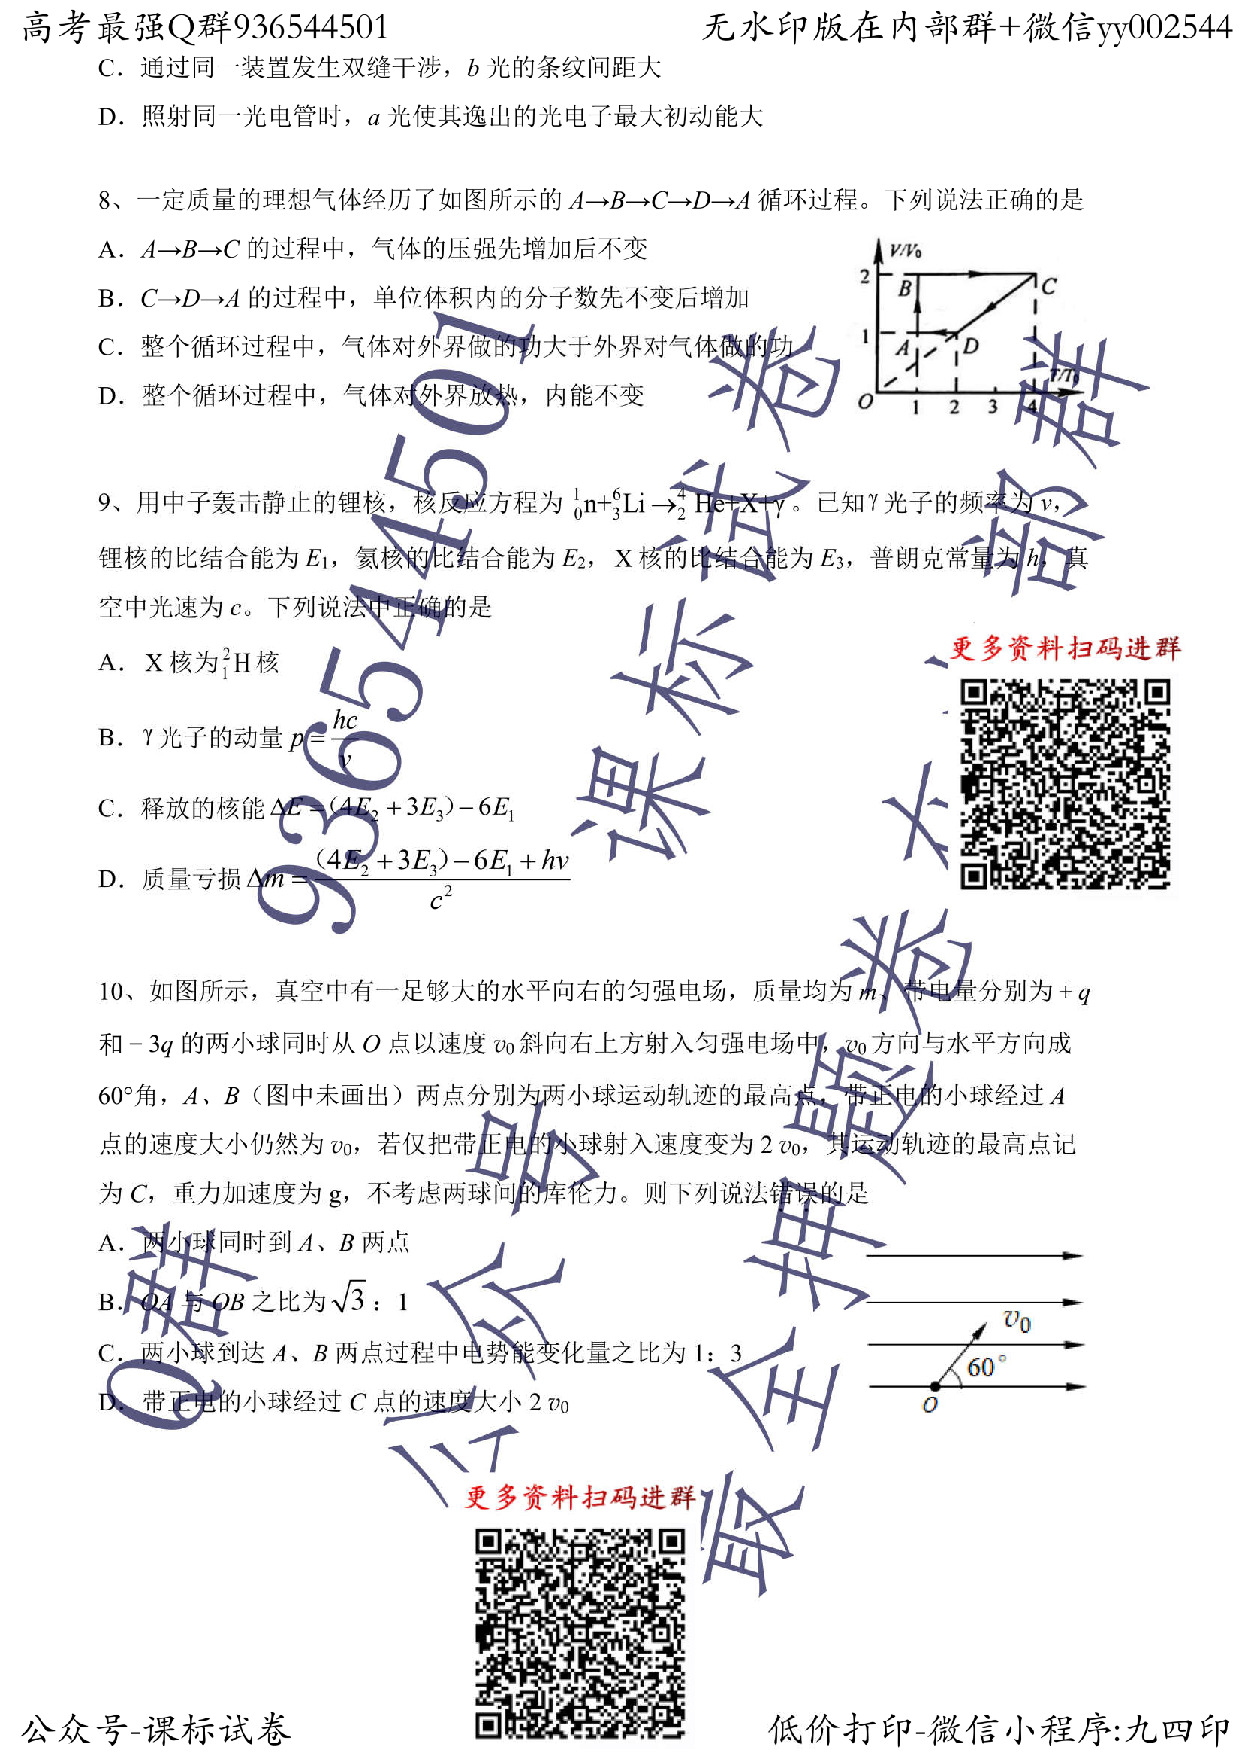 高考最强Q群936544501 无水印版在内部群+微信yy002544
C．通过同一装置发生双缝干涉，b 光的条纹间距大
D．照射同一光电管时，a 光使其逸出的光电子最大初动能大
8、一定质量的理想气体经历了如图所示的 A→B→C→D→A 循环过程。下列说法正确的是
A．A→B→C 的过程中，气体的压强先增加后不变
B．C→D→A 的过程中，单位体积内的分子数先不变后增加
C．整个循环过程中，气体对外界做的功大于外界对气体做的功
D．整个循环过程中，气体对外界放热，内能不变
V/V₀
2 B C
1 A D
T/T₀
O 1 2 3 4
9、用中子轰击静止的锂核，核反应方程为 ¹₀n+⁶₃Li→⁴₂He+X+γ。已知γ光子的频率为 ν，
锂核的比结合能为 E₁，氦核的比结合能为 E₂， X 核的比结合能为 E₃，普朗克常量为 h，真
空中光速为 c。下列说法中正确的是
A． X 核为²₁H 核
B．γ光子的动量 p = hc/ν
C．释放的核能 ΔE =（4E₂ + 3E₃）− 6E₁
D．质量亏损 Δm = (（4E₂ + 3E₃）− 6E₁ + hν)/c²
更多资料扫码进群
10、如图所示，真空中有一足够大的水平向右的匀强电场，质量均为 m、带电量分别为 + q
和﹣3q 的两小球同时从 O 点以速度 v₀ 斜向右上方射入匀强电场中，v₀ 方向与水平方向成
60°角，A、B（图中未画出）两点分别为两小球运动轨迹的最高点，带正电的小球经过 A
点的速度大小仍然为 v₀，若仅把带正电的小球射入速度变为 2 v₀，其运动轨迹的最高点记
为 C，重力加速度为 g，不考虑两球间的库伦力。则下列说法错误的是
A．两小球同时到 A、B 两点
B．OA 与 OB 之比为 √3：1
C．两小球到达 A、B 两点过程中电势能变化量之比为 1：3
D．带正电的小球经过 C 点的速度大小 2 v₀
v₀
60°
O
Q群 936544501
公众号 课标试卷
最全押题卷 部群
更多资料扫码进群
公众号-课标试卷 低价打印-微信小程序:九四印